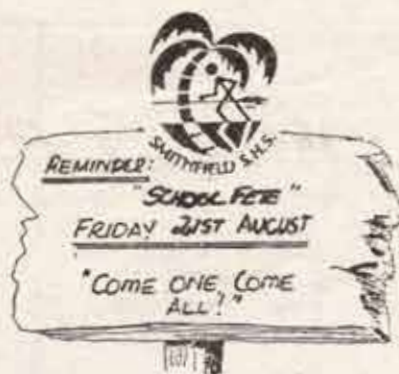 SMITHFIELD S.H.S.
REMINDER:
"SCHOOL FETE"
FRIDAY 21ST AUGUST
"COME ONE, COME
ALL!"